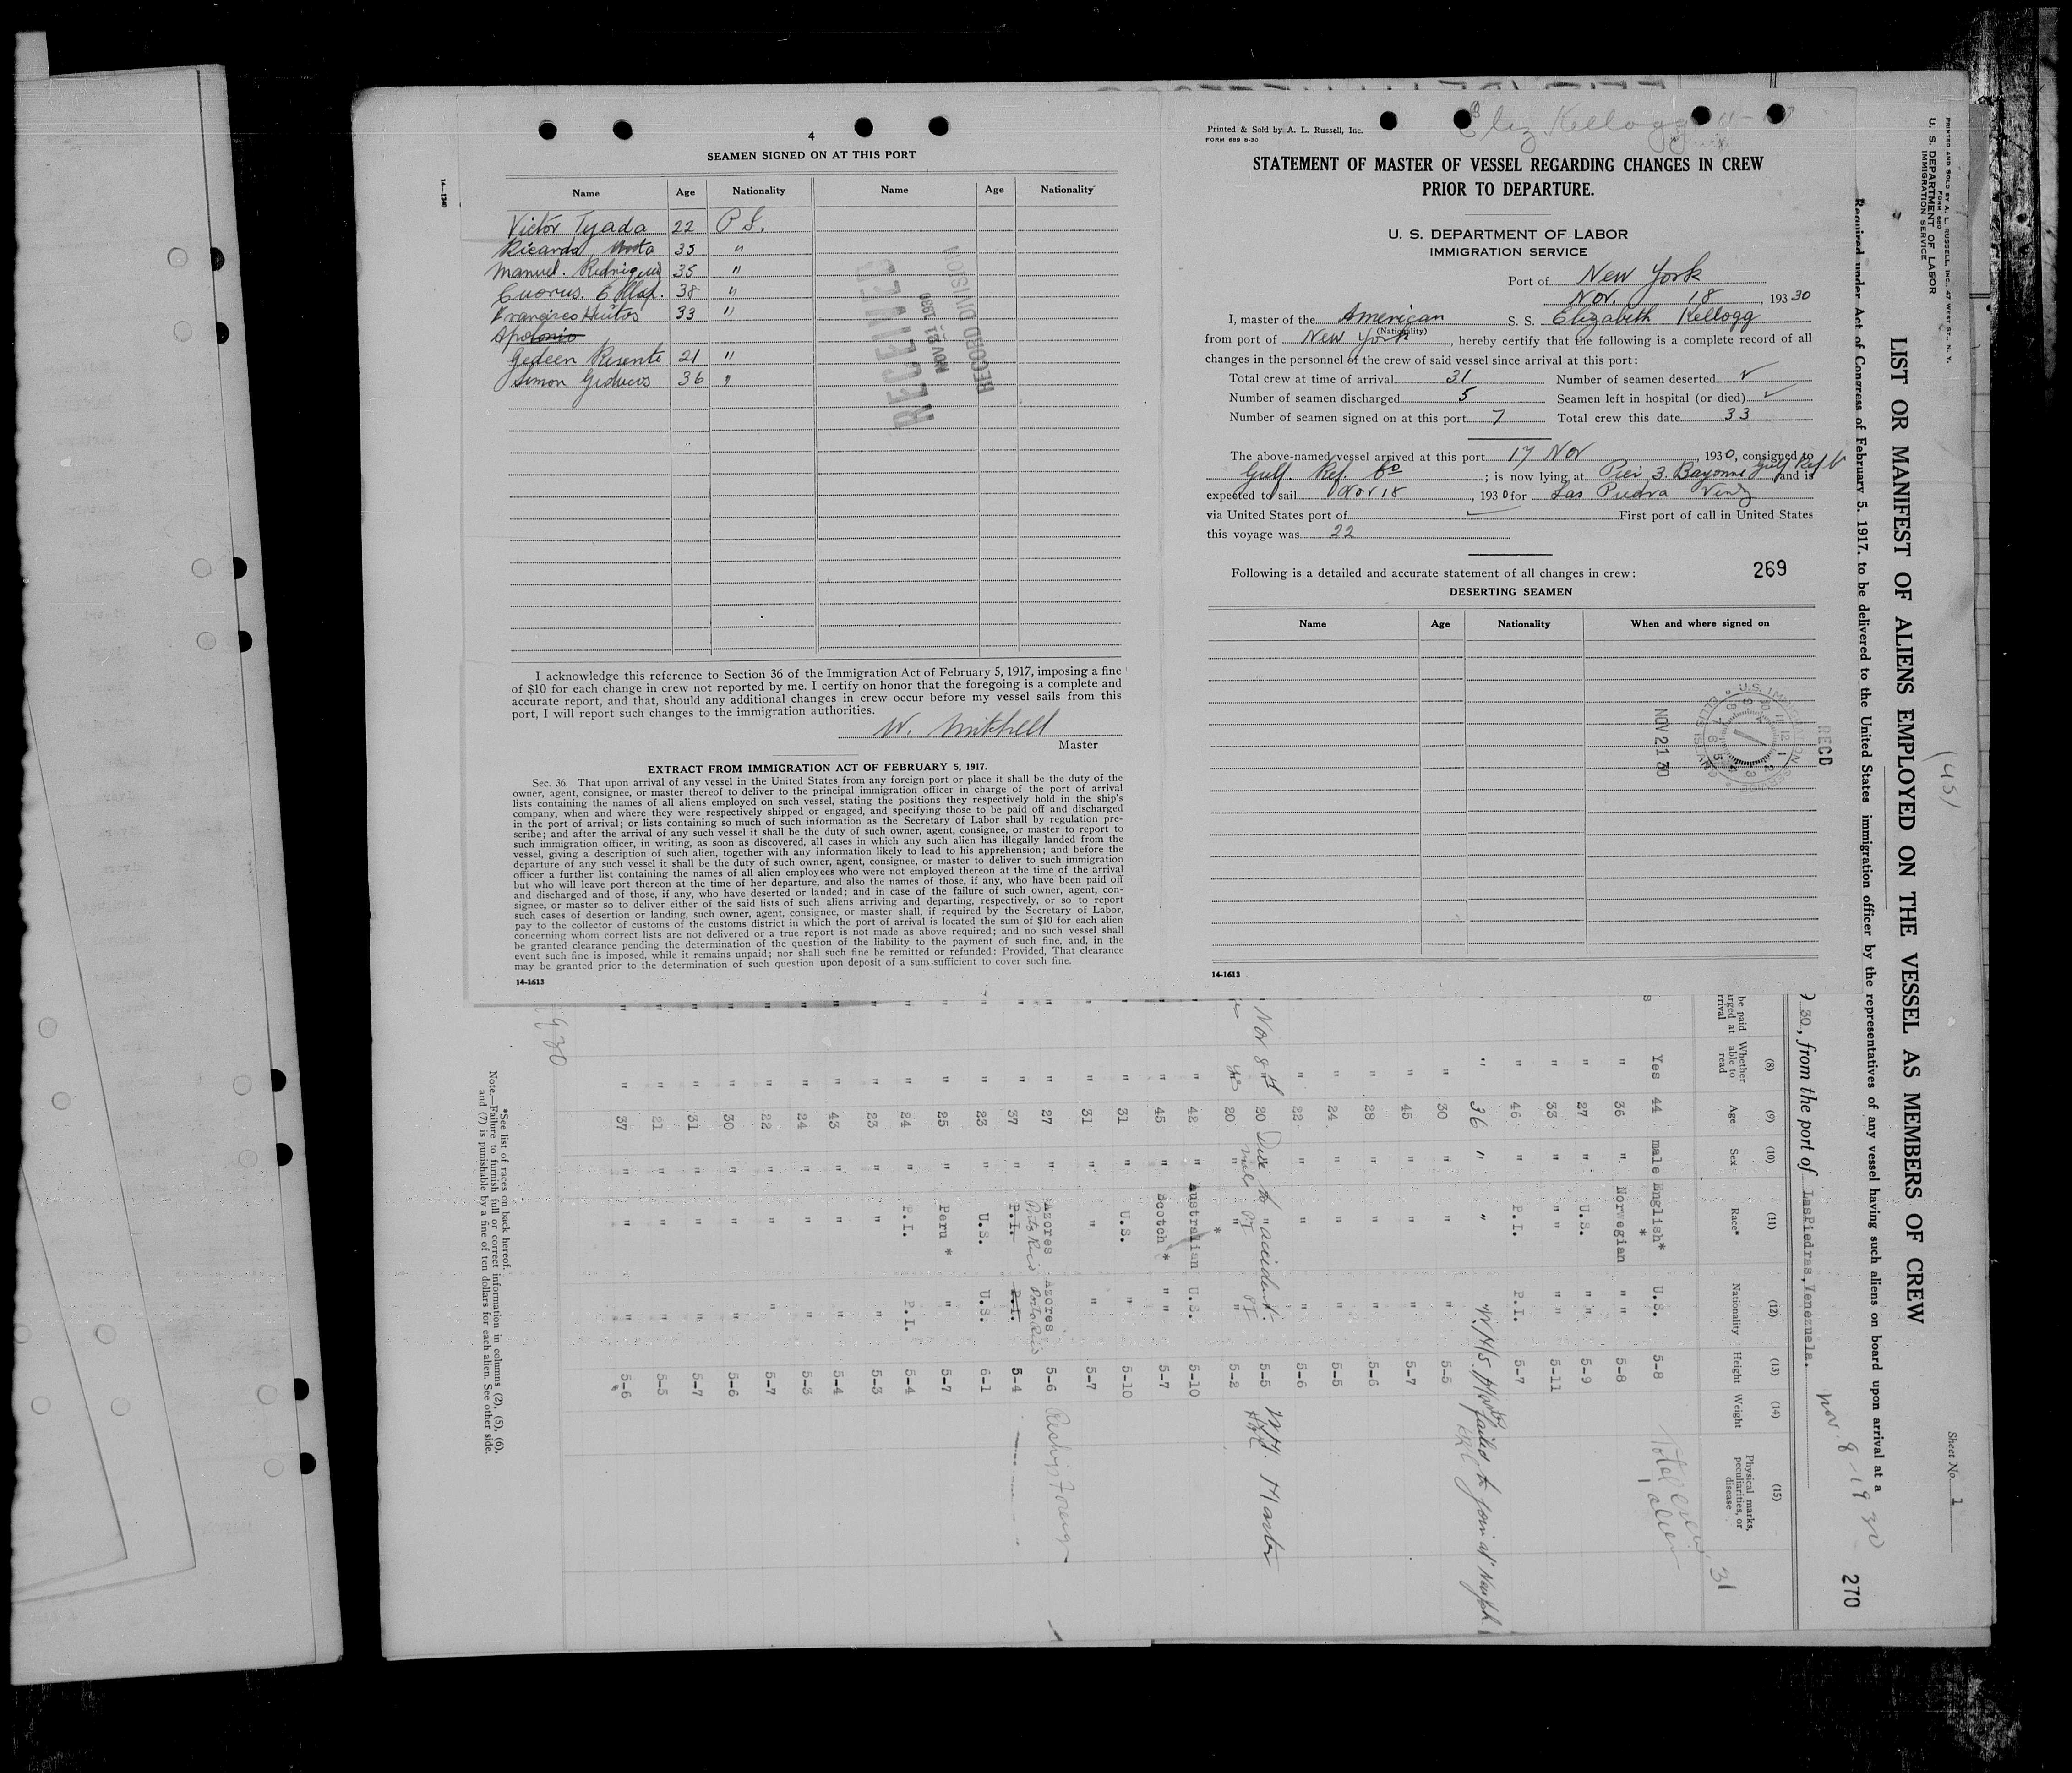 4
SEAMEN SIGNED ON AT THIS PORT
Name Age Nationality Name Age Nationality
Victor Tyada 22 P I.
Ricardo 35 "
Manuel. Rodriguez 35 "
38 "
Francisco Huitos 33 "
Apolonio
Gedeen Risento 21 "
Simon 36 "
RECEIVED
NOV 21 1930
RECORD DIVISION
I acknowledge this reference to Section 36 of the Immigration Act of February 5, 1917, imposing a fine
of $10 for each change in crew not reported by me. I certify on honor that the foregoing is a complete and
accurate report, and that, should any additional changes in crew occur before my vessel sails from this
port, I will report such changes to the immigration authorities.
W. Mitchell
Master
EXTRACT FROM IMMIGRATION ACT OF FEBRUARY 5, 1917.
Sec. 36. That upon arrival of any vessel in the United States from any foreign port or place it shall be the duty of the
owner, agent, consignee, or master thereof to deliver to the principal immigration officer in charge of the port of arrival
lists containing the names of all aliens employed on such vessel, stating the positions they respectively hold in the ship's
company, when and where they were respectively shipped or engaged, and specifying those to be paid off and discharged
in the port of arrival; or lists containing so much of such information as the Secretary of Labor shall by regulation pre-
scribe; and after the arrival of any such vessel it shall be the duty of such owner, agent, consignee, or master to report to
such immigration officer, in writing, as soon as discovered, all cases in which any such alien has illegally landed from the
vessel, giving a description of such alien, together with any information likely to lead to his apprehension; and before the
departure of any such vessel it shall be the duty of such owner, agent, consignee, or master to deliver to such immigration
officer a further list containing the names of all alien employees who were not employed thereon at the time of the arrival
but who will leave port thereon at the time of her departure, and also the names of those, if any, who have been paid off
and discharged and of those, if any, who have deserted or landed; and in case of the failure of such owner, agent, con-
signee, or master so to deliver either of the said lists of such aliens arriving and departing, respectively, or so to report
such cases of desertion or landing, such owner, agent, consignee, or master shall, if required by the Secretary of Labor,
pay to the collector of customs of the customs district in which the port of arrival is located the sum of $10 for each alien
concerning whom correct lists are not delivered or a true report is not made as above required; and no such vessel shall
be granted clearance pending the determination of the question of the liability to the payment of such fine, and, in the
event such fine is imposed, while it remains unpaid; nor shall such fine be remitted or refunded: Provided, That clearance
may be granted prior to the determination of such question upon deposit of a sum sufficient to cover such fine.
14-1613
Eliz Kellogg
Printed & Sold by A. L. Russell, Inc.
FORM 689 8-30
STATEMENT OF MASTER OF VESSEL REGARDING CHANGES IN CREW
PRIOR TO DEPARTURE.
U. S. DEPARTMENT OF LABOR
IMMIGRATION SERVICE
Port of New York
Nov. 18, 193 30
I, master of the American S. S. Elizabeth Kellogg
(Nationality)
from port of New York, hereby certify that the following is a complete record of all
changes in the personnel of the crew of said vessel since arrival at this port:
Total crew at time of arrival 31 Number of seamen deserted ✓
Number of seamen discharged 5 Seamen left in hospital (or died) ✓
Number of seamen signed on at this port 7 Total crew this date 33
The above-named vessel arrived at this port 17 Nov, 1930, consigned to
Gulf. Ref. Co; is now lying at Pier 3. Bayonne Gulf Ref and is
expected to sail Nov 18, 1930 for Las Piedra Venz
via United States port of First port of call in United States
this voyage was 22
Following is a detailed and accurate statement of all changes in crew: 269
DESERTING SEAMEN
Name Age Nationality When and where signed on
RECD
NOV 21 30
14-1613
PRINTED AND SOLD BY A. L. RUSSELL, INC., 47 WEST ST., N. Y.
FORM 680
U. S. DEPARTMENT OF LABOR
IMMIGRATION SERVICE
Sheet No. 1
LIST OR MANIFEST OF ALIENS EMPLOYED ON THE VESSEL AS MEMBERS OF CREW
Required under Act of Congress of February 5, 1917, to be delivered to the United States immigration officer by the representatives of any vessel having such aliens on board upon arrival at a
Nov. 8-1930
270
30, from the port of LasPiedras, Venezuela.
(8) (9) (10) (11) (12) (13) (14) (15)
Whether able to read Age Sex Race* Nationality Height Weight Physical marks, peculiarities, or disease
Yes 44 male English* U.S. 5-8
" 36 " Norwegian * " " 5-8
" 27 " U.S. " " 5-9
" 33 " " " " " 5-11
" 46 " P.I. P.I. 5-7
" 36 " " " failed to join at New York
" 30 " " " 5-5
" 45 " " " 5-7
" 28 " " " 5-6
" 24 " " " 5-5
" 22 " " " 5-6
Nov 8 20 Due to accident. 5-5 Master
yes 20 male PI PI 5-2
" 42 " Australian * U.S. 5-10
" 45 " Scotch * " " 5-7
" 31 " U.S. " 5-10
" 31 " " " 5-7
" 27 " Azores Azores 5-6
" 37 " P.I. Porto Rico P.I. Porto Rico 5-4
" 23 " U.S. U.S. 6-1
" 25 " Peru * " 5-7
" 24 " P.I. P.I. 5-4
" 23 " " " 5-3
" 43 " " " 5-4
" 24 " " " 5-3
" 22 " " " 5-7
" 30 " " " 5-6
" 31 " " " 5-7
" 21 " " " 5-5
" 37 " " " 5-6
*See list of races on back hereof.
Note—Failure to furnish full or correct information in columns (2), (5), (6),
and (7) is punishable by a fine of ten dollars for each alien. See other side.